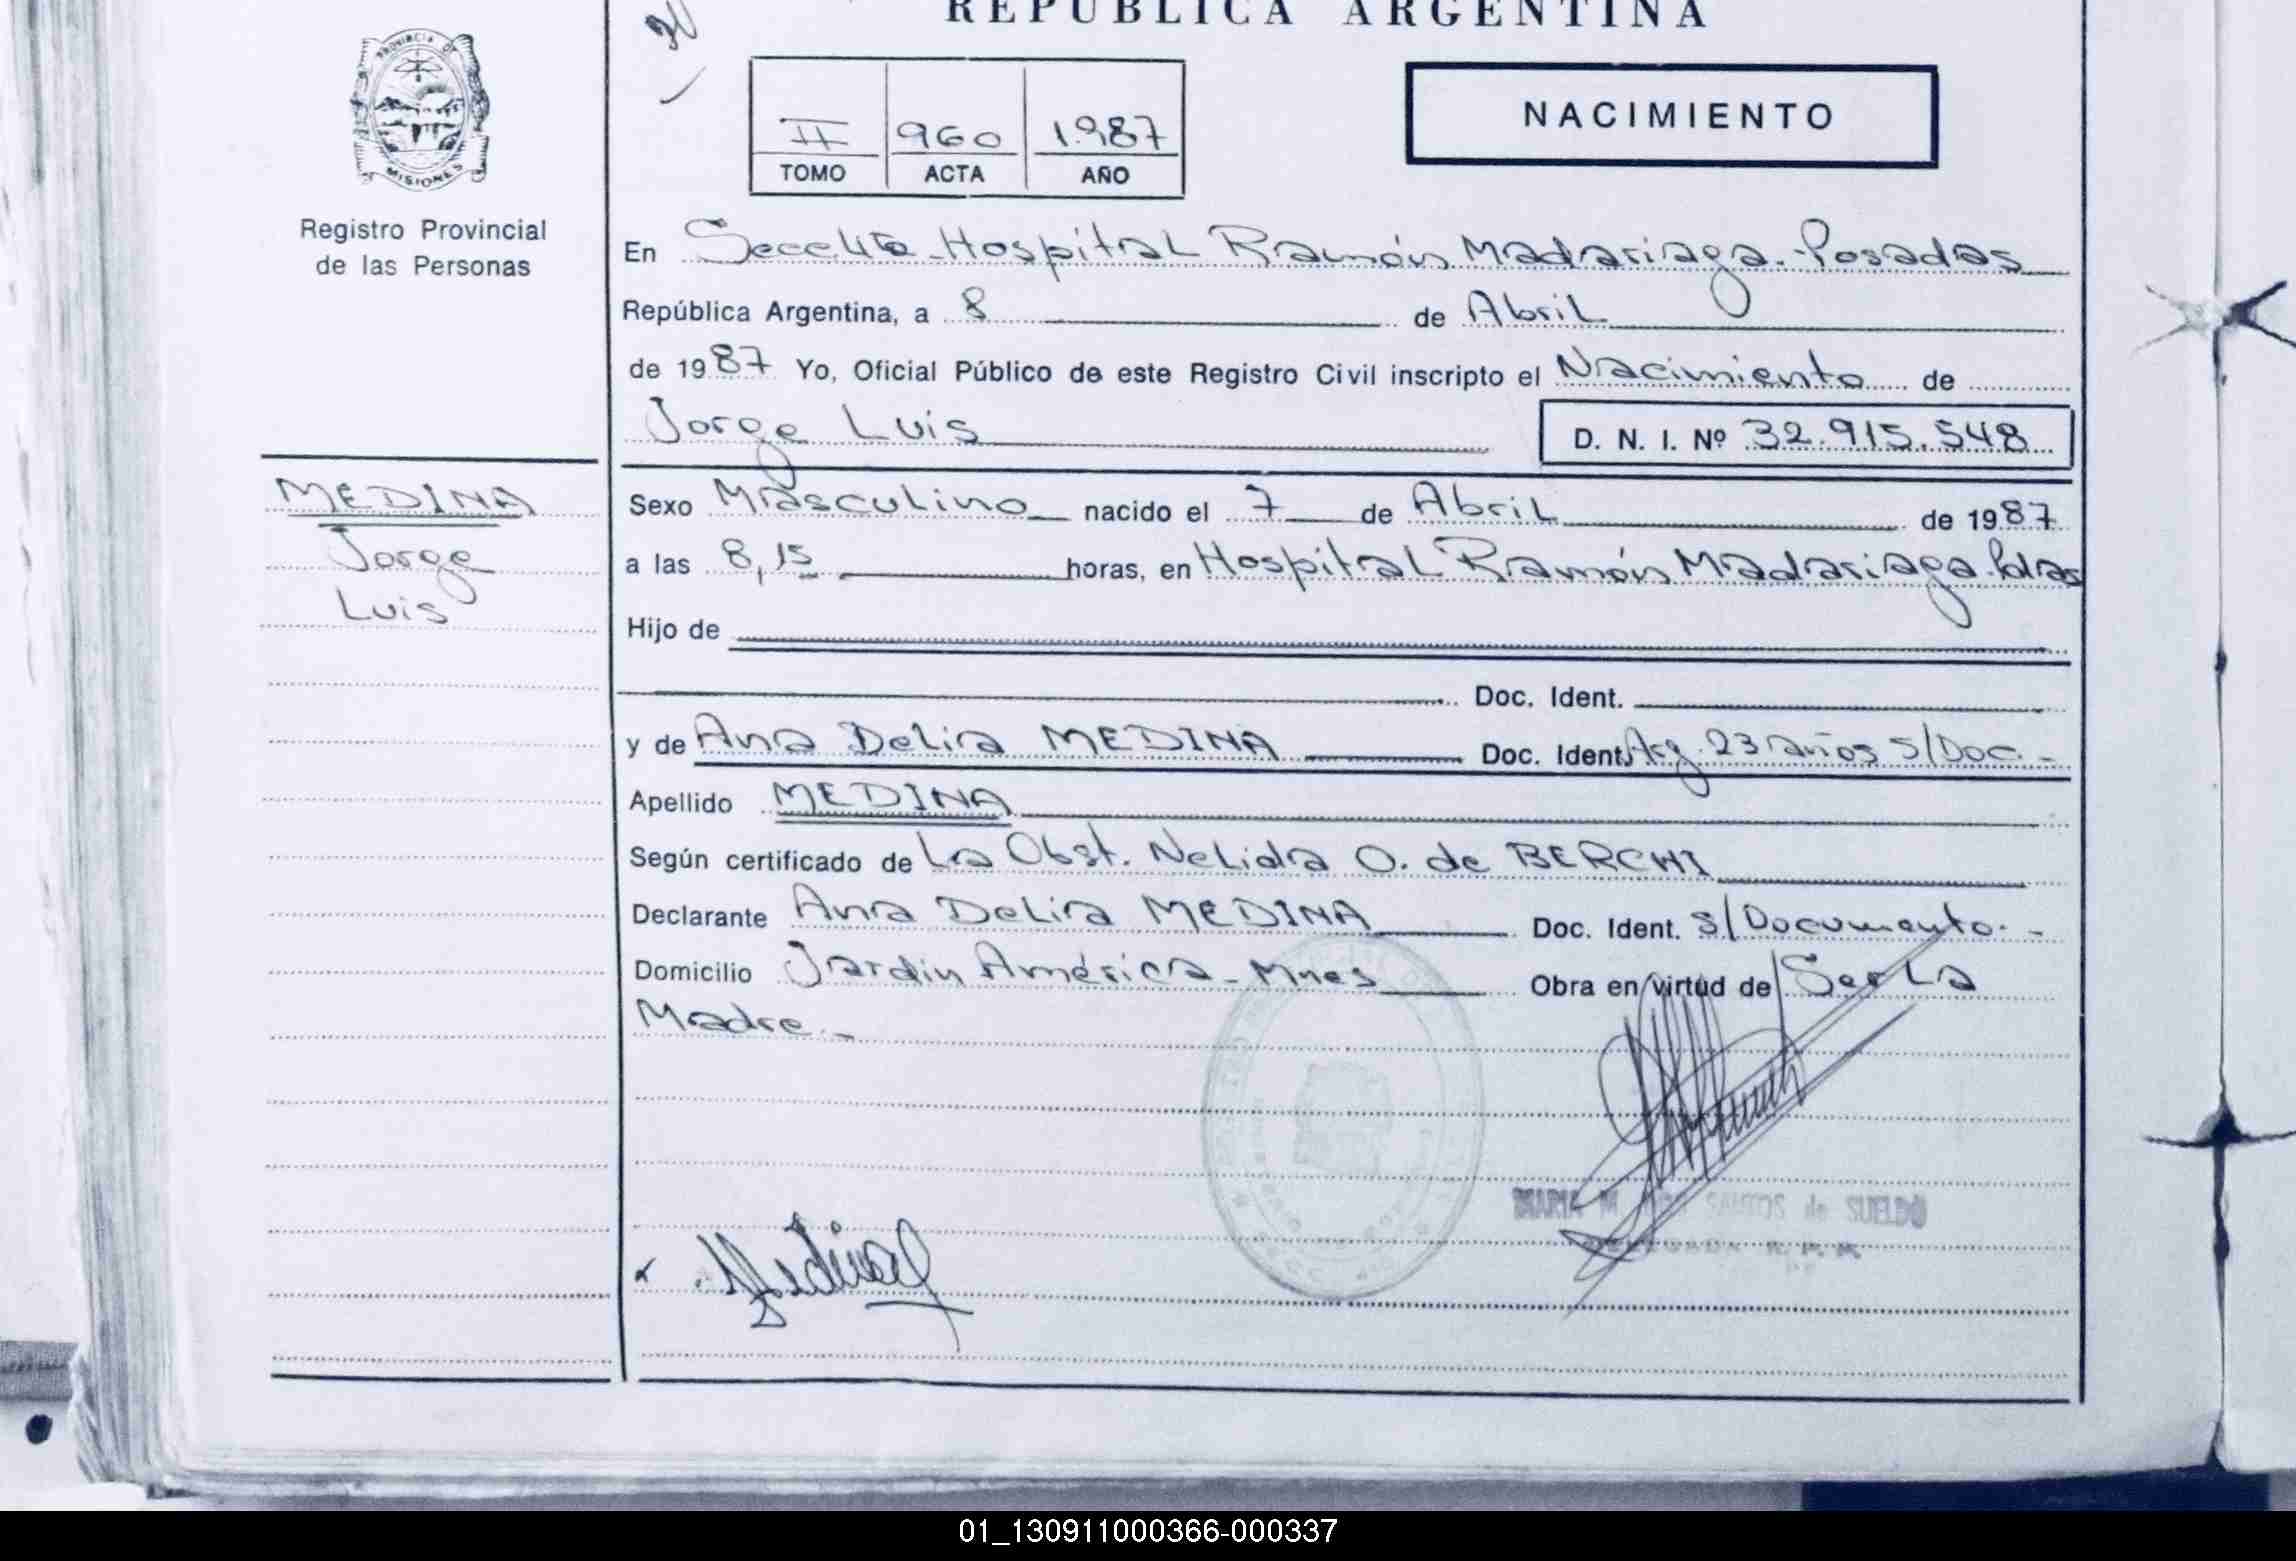 REPUBLICA ARGENTINA
PROVINCIA DE
MISIONES
Registro Provincial
de las Personas
II 960 1.987
TOMO ACTA AÑO
NACIMIENTO
En Hospital Ramón Madariaga - Posadas
República Argentina, a 8 de Abril
de 1987 Yo, Oficial Público de este Registro Civil inscripto el Nacimiento de
Jorge Luis
D. N. I. Nº 32.915.548
MEDINA
Jorge
Luis
Sexo Masculino nacido el 7 de Abril de 1987
a las 8,15 horas, en Hospital Ramón Madariaga. Pdas
Hijo de
Doc. Ident.
y de Ana Delia MEDINA Doc. Ident. Arg. 23 años S/Doc. -
Apellido MEDINA
Según certificado de La Obst. Nelida O. de BERCHI
Declarante Ana Delia MEDINA Doc. Ident. S/Documento. -
Domicilio Jardin América - Mnes Obra en virtud de Ser La
Madre. -
Medina
MARIA M SANTOS de SUELDO
01_130911000366-000337